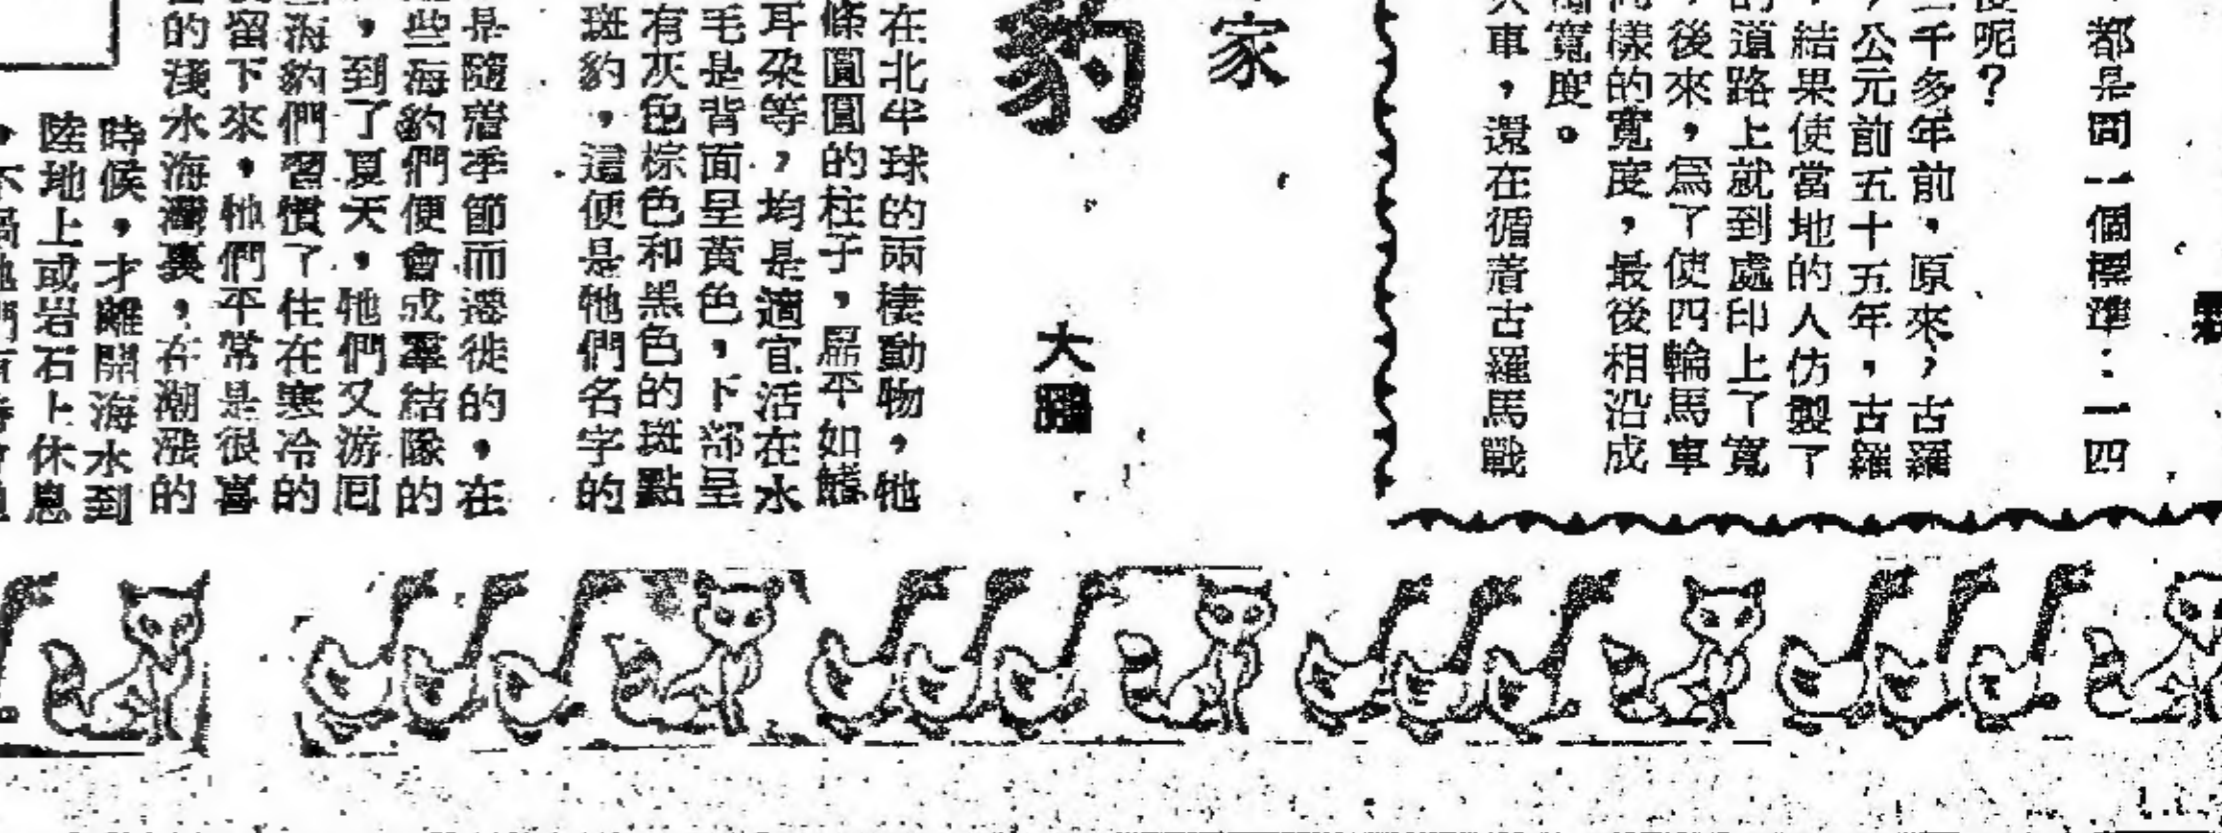 都是同一個標準：一四
度呢？
二千多年前，原來，古羅
，公元前五十五年，古羅
，結果使當地的人仿製了
的道路上就到處印上了寬
，後來，爲了使四輪馬車
同樣的寬度，最後相沿成
寬度。
火車，還在循着古羅馬戰
家
豹
大鵬
在北半球的兩棲動物，牠
條圓圓的柱子，扁平如鰭
耳朶等，均是適宜活在水
毛是背面呈黃色，下部呈
有灰色棕色和黑色的斑點
斑豹，這便是牠們名字的
是隨着季節而遷徙的，在
些海豹們便會成羣結隊的
，到了夏天，牠們又游囘
海豹們習慣了住在寒冷的
留下來，牠們平常是很喜
的淺水海灣裏，在潮漲的
時候，才離開海水到
陸地上或岩石上休息
，不過牠們有時會